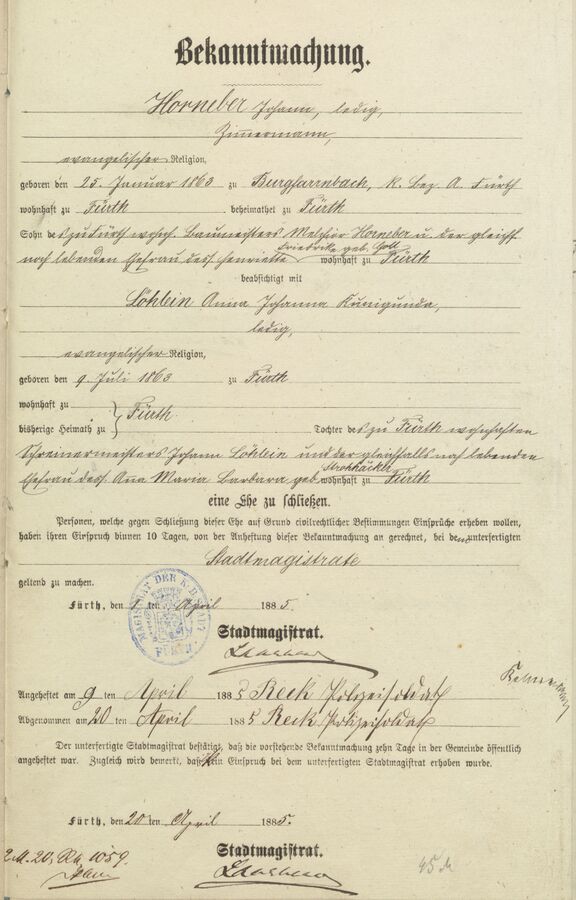 Bekanntmachung.
Horneber Johann, ledig,
Zimmermann,
evangelischer Religion,
geboren den 25. Januar 1863 zu Burgfarrnbach, K. Bez. A. Fürth
wohnhaft zu Fürth beheimathet zu Fürth
Sohn des zu Fürth wohnh. Baumeisters Melchior Horneber u. der gleichf.
noch lebenden Ehefrau dess. Henriette Friedrike geb. wohnhaft zu Fürth
beabsichtigt mit
Löhlein Anna Johanna Kunigunda,
ledig,
evangelischer Religion,
geboren den 9. Juli 1863 zu Fürth
wohnhaft zu
bisherige Heimath zu } Fürth Tochter des zu Fürth wohnhaften
Schreinermeisters Johann Löhlein und der gleichfalls noch lebenden
Ehefrau dess. Ana Maria Barbara geb. Strohhäcker wohnhaft zu Fürth
eine Ehe zu schließen.
Personen, welche gegen Schließung dieser Ehe auf Grund civilrechtlicher Bestimmungen Einsprüche erheben wollen,
haben ihren Einspruch binnen 10 Tagen, von der Anheftung dieser Bekanntmachung an gerechnet, bei dem unterfertigten
Stadtmagistrate
geltend zu machen.
Fürth, den ten April 1885.
MAGISTRAT DER K. B. STADT FÜRTH
Stadtmagistrat.
Angeheftet am 9 ten April 1885 Reck Polizeisoldat
Abgenommen am 20 ten April 1885 Reck Polizeisoldat
Der unterfertigte Stadtmagistrat bestätigt, daß die vorstehende Bekanntmachung zehn Tage in der Gemeinde öffentlich
angeheftet war. Zugleich wird bemerkt, daß ein Einspruch bei dem unterfertigten Stadtmagistrat erhoben wurde.
Fürth, den 20 ten April 1885.
2 M. 20, 1059.
Stadtmagistrat.